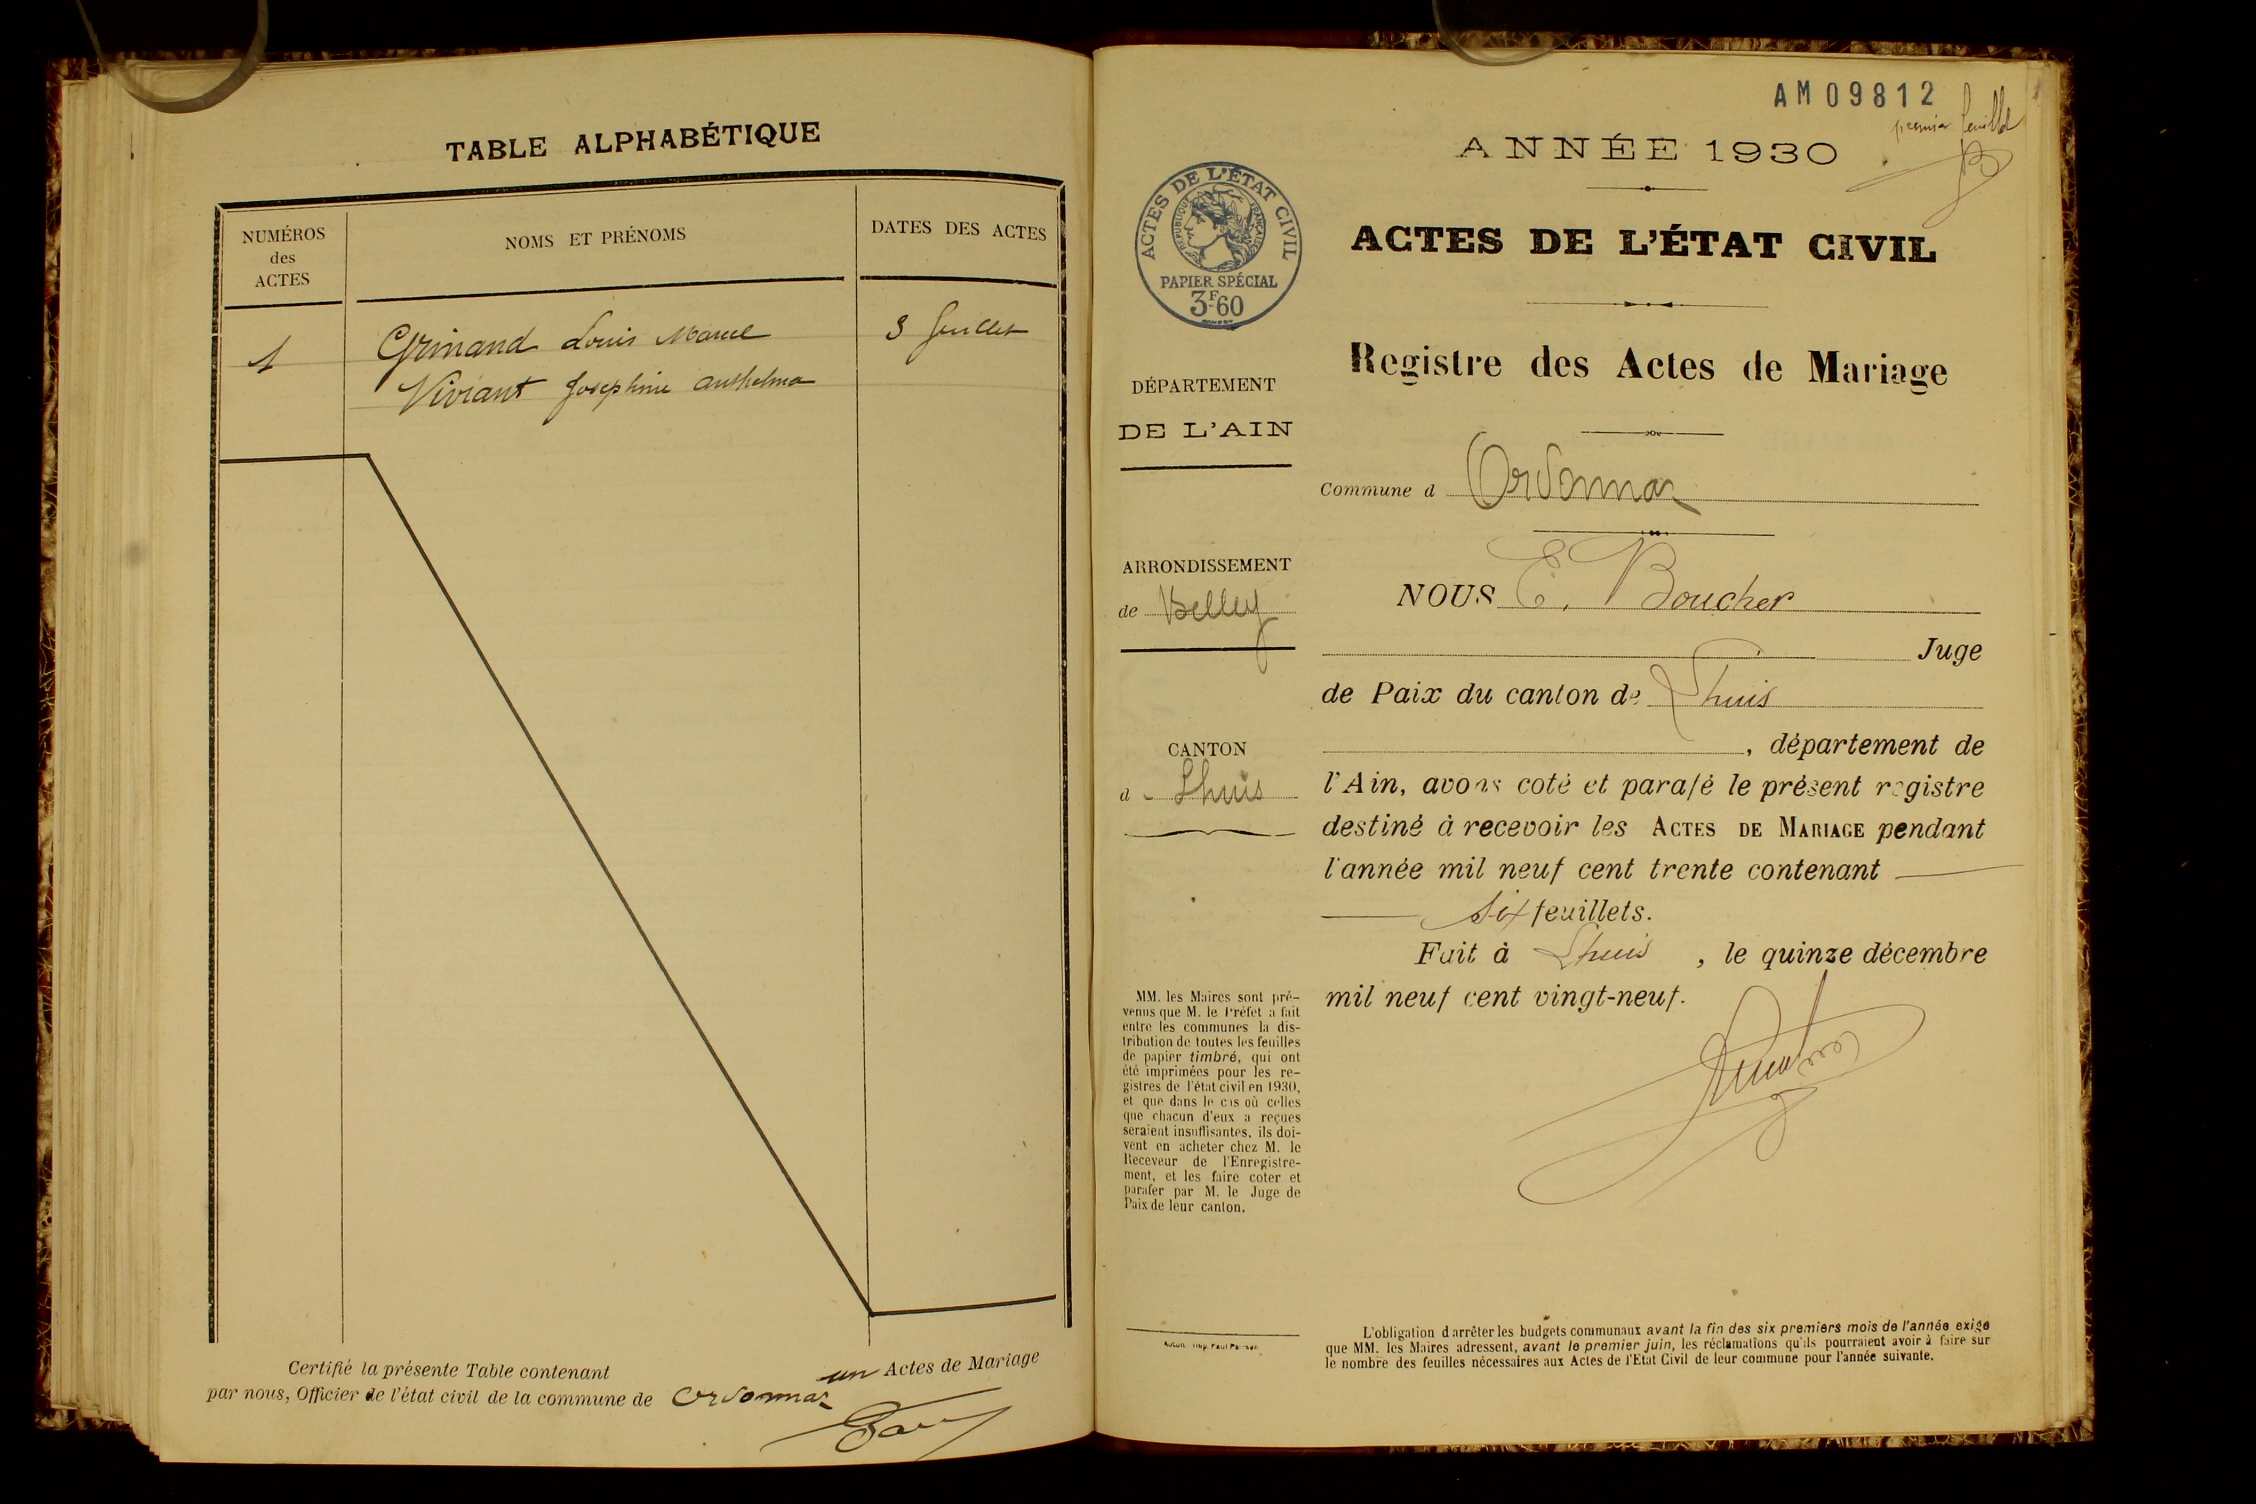 TABLE ALPHABÉTIQUE
NUMÉROS
des
ACTES
NOMS ET PRÉNOMS
DATES DES ACTES
1
Grinand Louis Marcel
3 Juillet
Viviant Josephine Anthelma
Certifié la présente Table contenant un Actes de Mariage
par nous, Officier de l'état civil de la commune de Ordonnaz
AM09812
premier feuillet
ANNÉE 1930
ACTES DE L'ÉTAT CIVIL
RÉPUBLIQUE FRANÇAISE
PAPIER SPÉCIAL
3F60
ACTES DE L'ÉTAT CIVIL
Registre des Actes de Mariage
DÉPARTEMENT
DE L'AIN
ARRONDISSEMENT
de Belley
CANTON
d Lhuis
MM. les Maires sont pré-
venus que M. le Préfet a fait
entre les communes la dis-
tribution de toutes les feuilles
de papier timbré, qui ont
été imprimées pour les re-
gistres de l'état civil en 1930,
et que dans le cas où celles
que chacun d'eux a reçues
seraient insuffisantes, ils doi-
vent en acheter chez M. le
Receveur de l'Enregistre-
ment, et les faire coter et
parafer par M. le Juge de
Paix de leur canton.
Commune d Ordonnaz
NOUS E. Boucher
Juge
de Paix du canton de Lhuis
, département de
l'Ain, avons coté et parafé le présent registre
destiné à recevoir les ACTES DE MARIAGE pendant
l'année mil neuf cent trente contenant
six feuillets.
Fait à Lhuis, le quinze décembre
mil neuf cent vingt-neuf.
L'obligation d'arrêter les budgets communaux avant la fin des six premiers mois de l'année exige
que MM. les Maires adressent, avant le premier juin, les réclamations qu'ils pourraient avoir à faire sur
le nombre des feuilles nécessaires aux Actes de l'Etat Civil de leur commune pour l'année suivante.